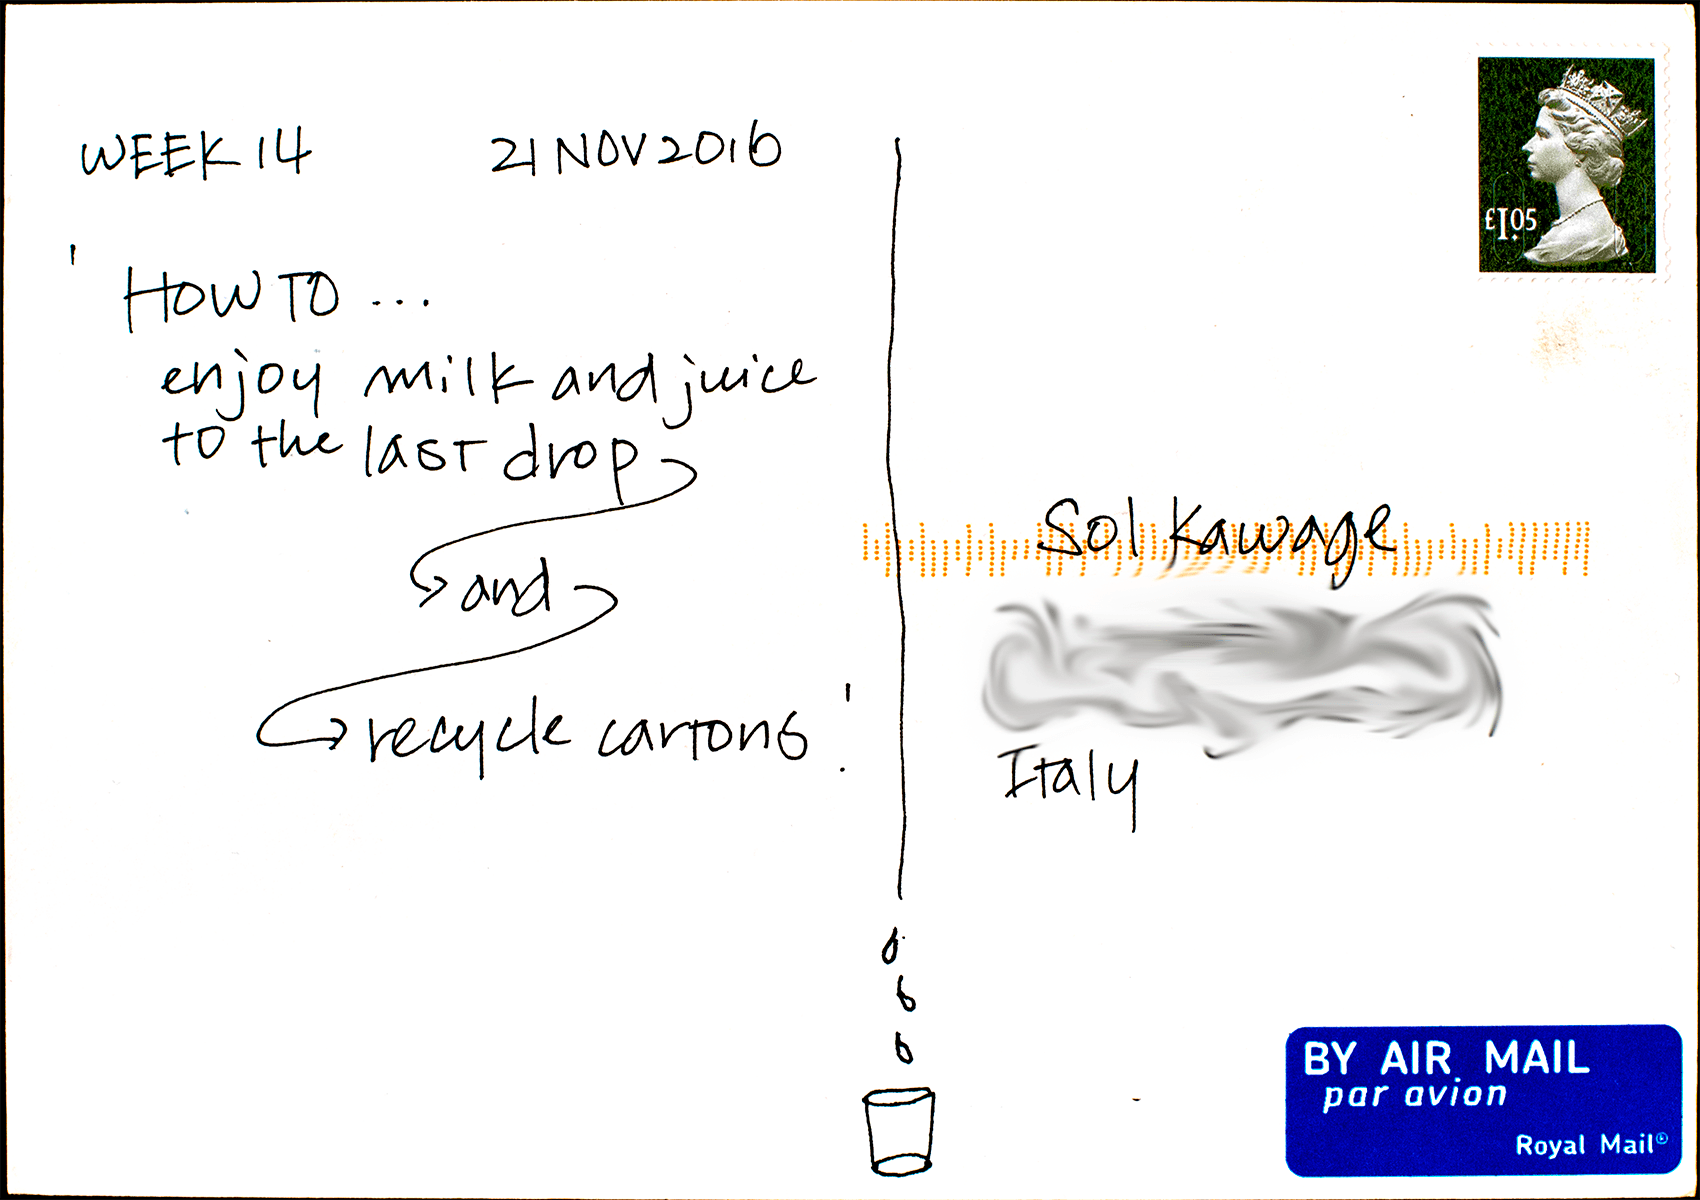 WEEK 14 21 NOV 2016
HOW TO ...
enjoy milk and juice
to the last drop
and
recycle cartons!
£1.05
Sol Kawage
Italy
BY AIR MAIL
par avion
Royal Mail©